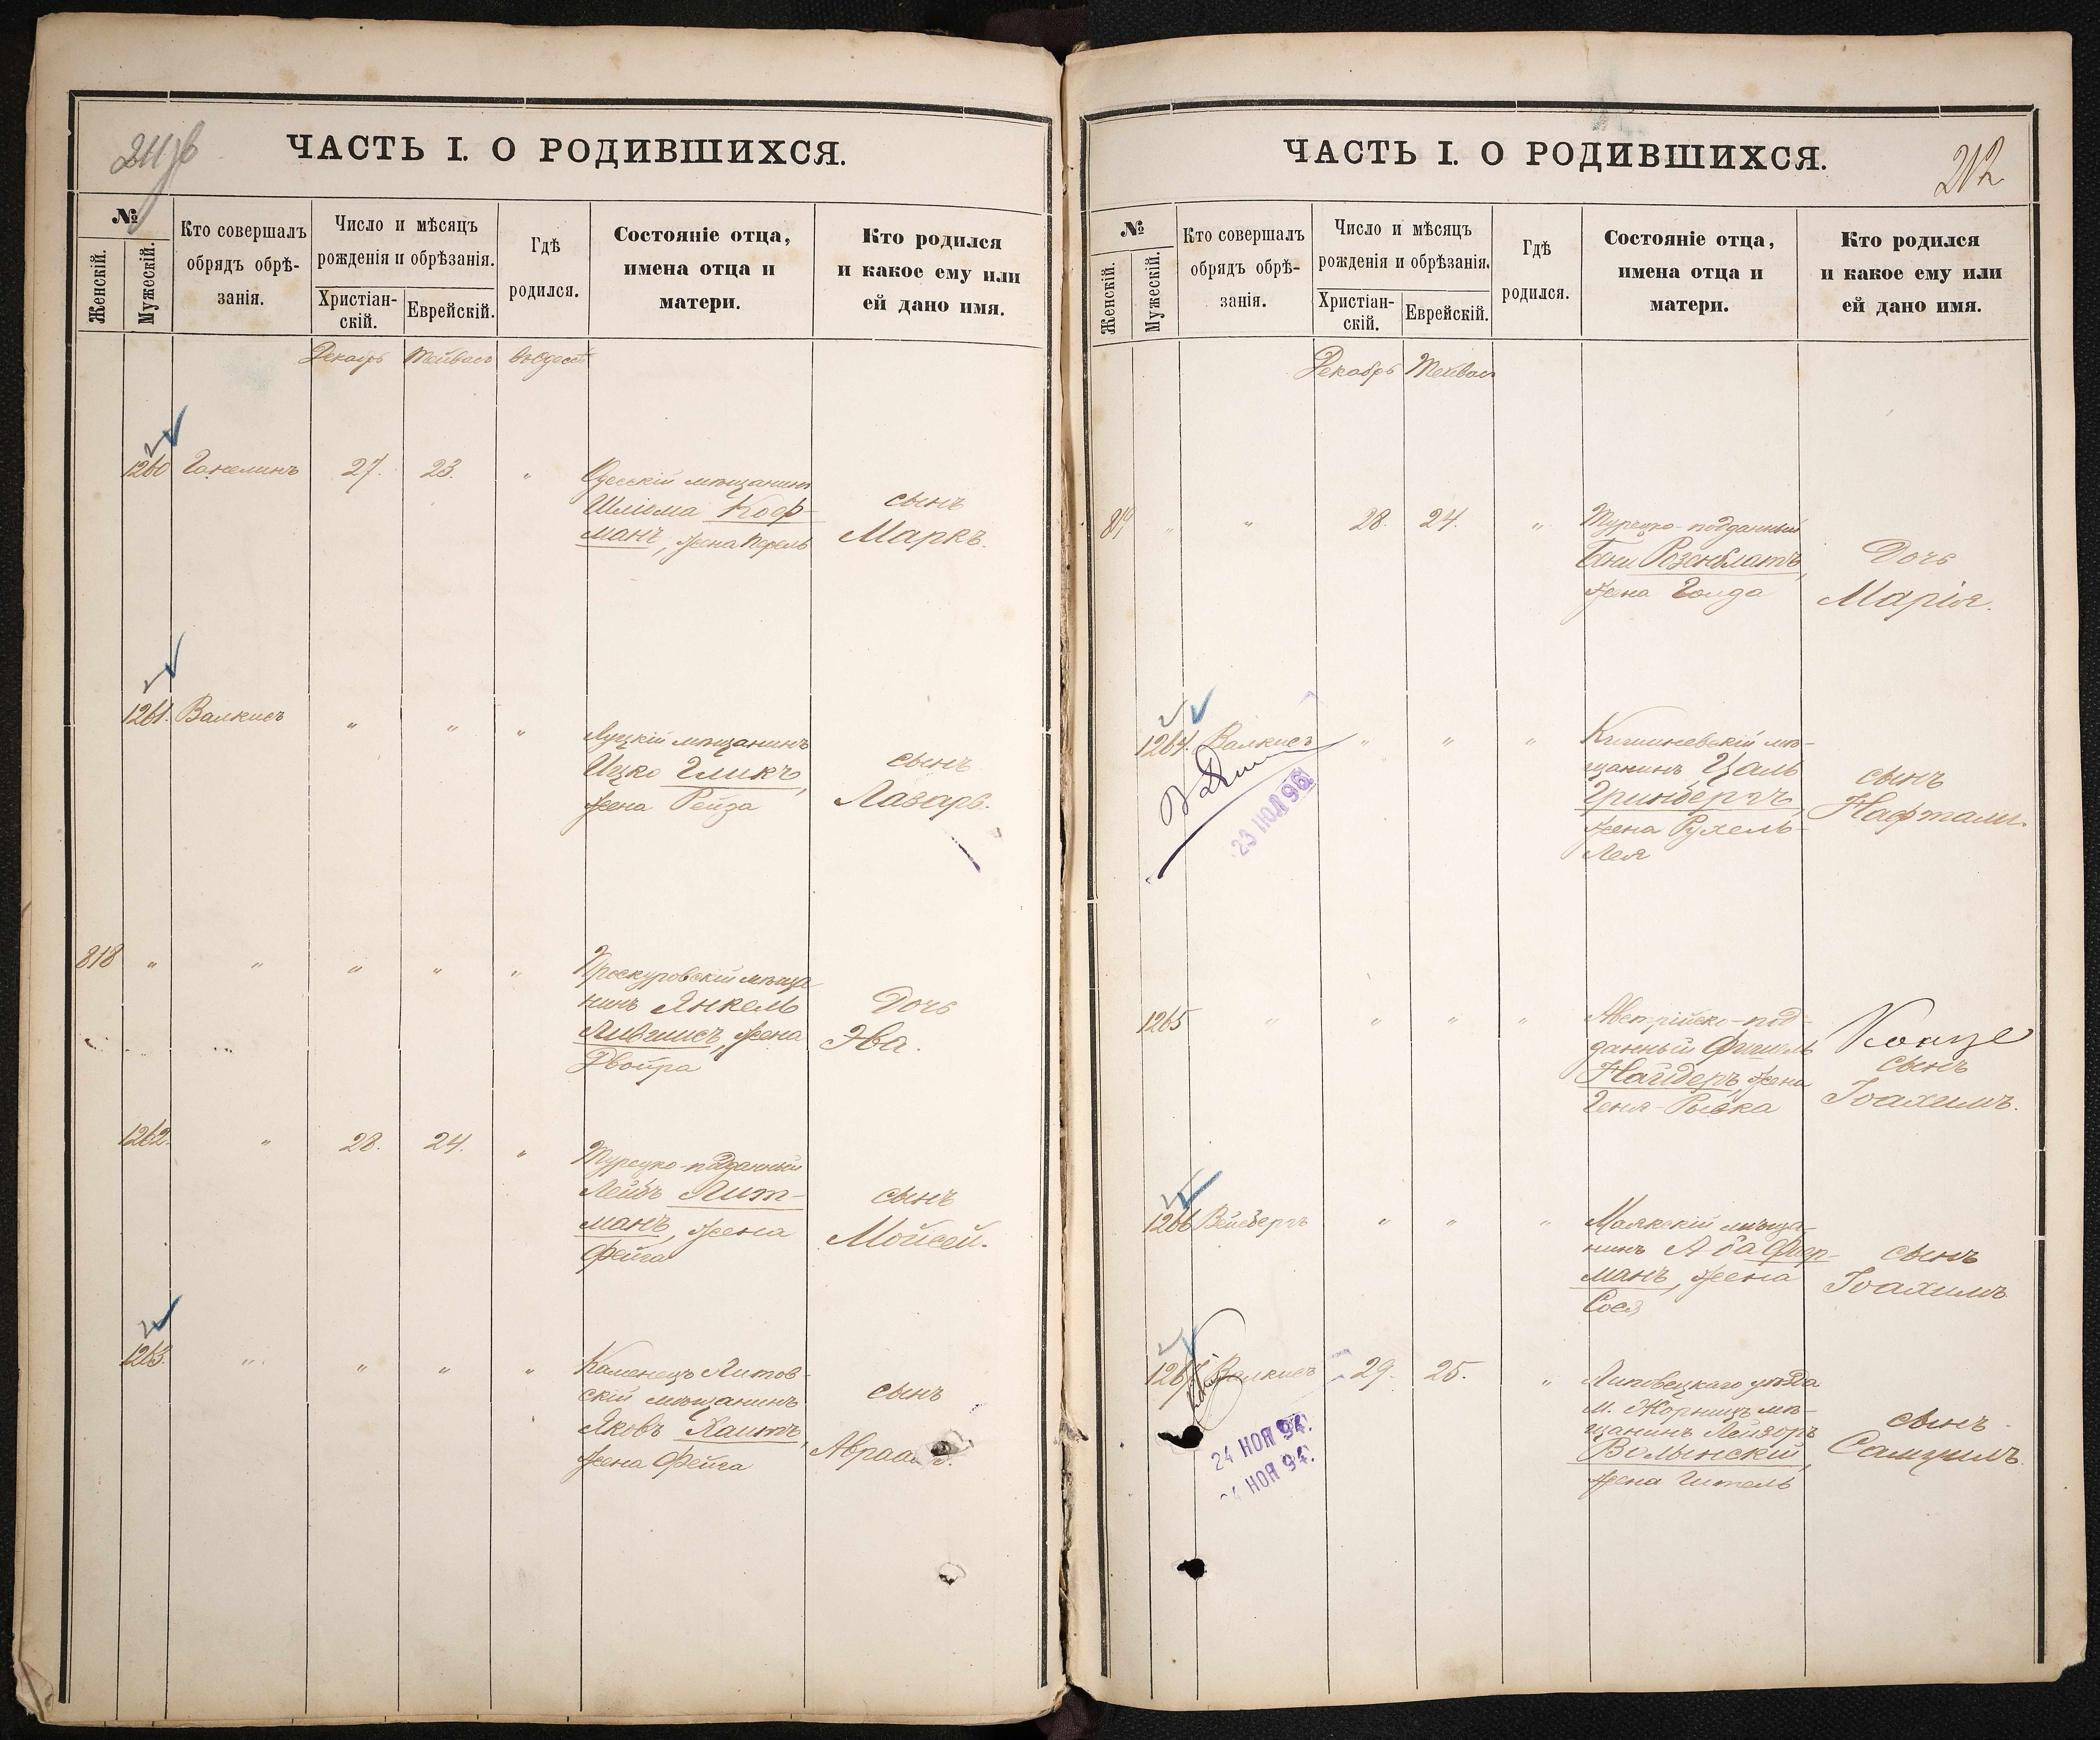 ЧАСТЬ I. О РОДИВШИХСЯ.
№
Женскій.
Мужескій.
Кто совершалъ
обрядъ обрѣ-
занія.
Число и мѣсяцъ
рожденія и обрѣзанія.
Христіан-
скій.
Еврейскій.
Гдѣ
родился.
Состояніе отца,
имена отца и
матери.
Кто родился
и какое ему или
ей дано имя.
Декабрь Тейвасъ въ Одессѣ
1260 Ганелинъ 27. 23. "
Одесскій мѣщанинъ
Шліома Коф-
манъ, жена Перель
сынъ
Маркъ.
1261. Валкисъ " " "
Луцкій мѣщанинъ
Ицко Гликъ,
жена Рейза
сынъ
Лазарь.
818 " " " " "
Проскуровскій мѣща
нинъ Янкель
Лившисъ, жена
Двойра
Дочь
Эва.
1262. " 28. 24. "
Турецко-подданный
Лейбъ Лит-
манъ, жена
Фейга
сынъ
Мойсей.
1263. " " " "
Каменецъ Литов-
скій мѣщанинъ
Яковъ Хаитъ,
жена Фейга
сынъ
ЧАСТЬ I. О РОДИВШИХСЯ.
212
№
Женскій.
Мужескій.
Кто совершалъ
обрядъ обрѣ-
занія.
Число и мѣсяцъ
рожденія и обрѣзанія.
Христіан-
скій.
Еврейскій.
Гдѣ
родился.
Состояніе отца,
имена отца и
матери.
Кто родился
и какое ему или
ей дано имя.
Декабрь Тейвас
819 " " 28. 24. "
Турецко-подданный
Бени Розенблатъ,
жена Голда
Дочь
Марія.
1264. Валкисъ " " "
23 НОЯ 96
Кишиневскій мѣ-
щанинъ Цаль
Гринбергъ,
жена Рухель-
Лея
сынъ
Нафтали.
1265 " " " "
Австрійско-под-
данный Фишель
Найдеръ, жена
Геня-Рывка
сынъ
Іоахимъ.
1266 Вейсбергъ " " "
Маякскій мѣща-
нинъ Аба Фер-
манъ, жена
сынъ
Іоахимъ
1267 Валкисъ 29. 25. "
24 НОЯ 94.
24 НОЯ 94.
Липовецкаго уѣзда
м. Жорнищъ мѣ-
щанинъ Лейзоръ
Волынскій,
жена Гитель
сынъ
Самуилъ.